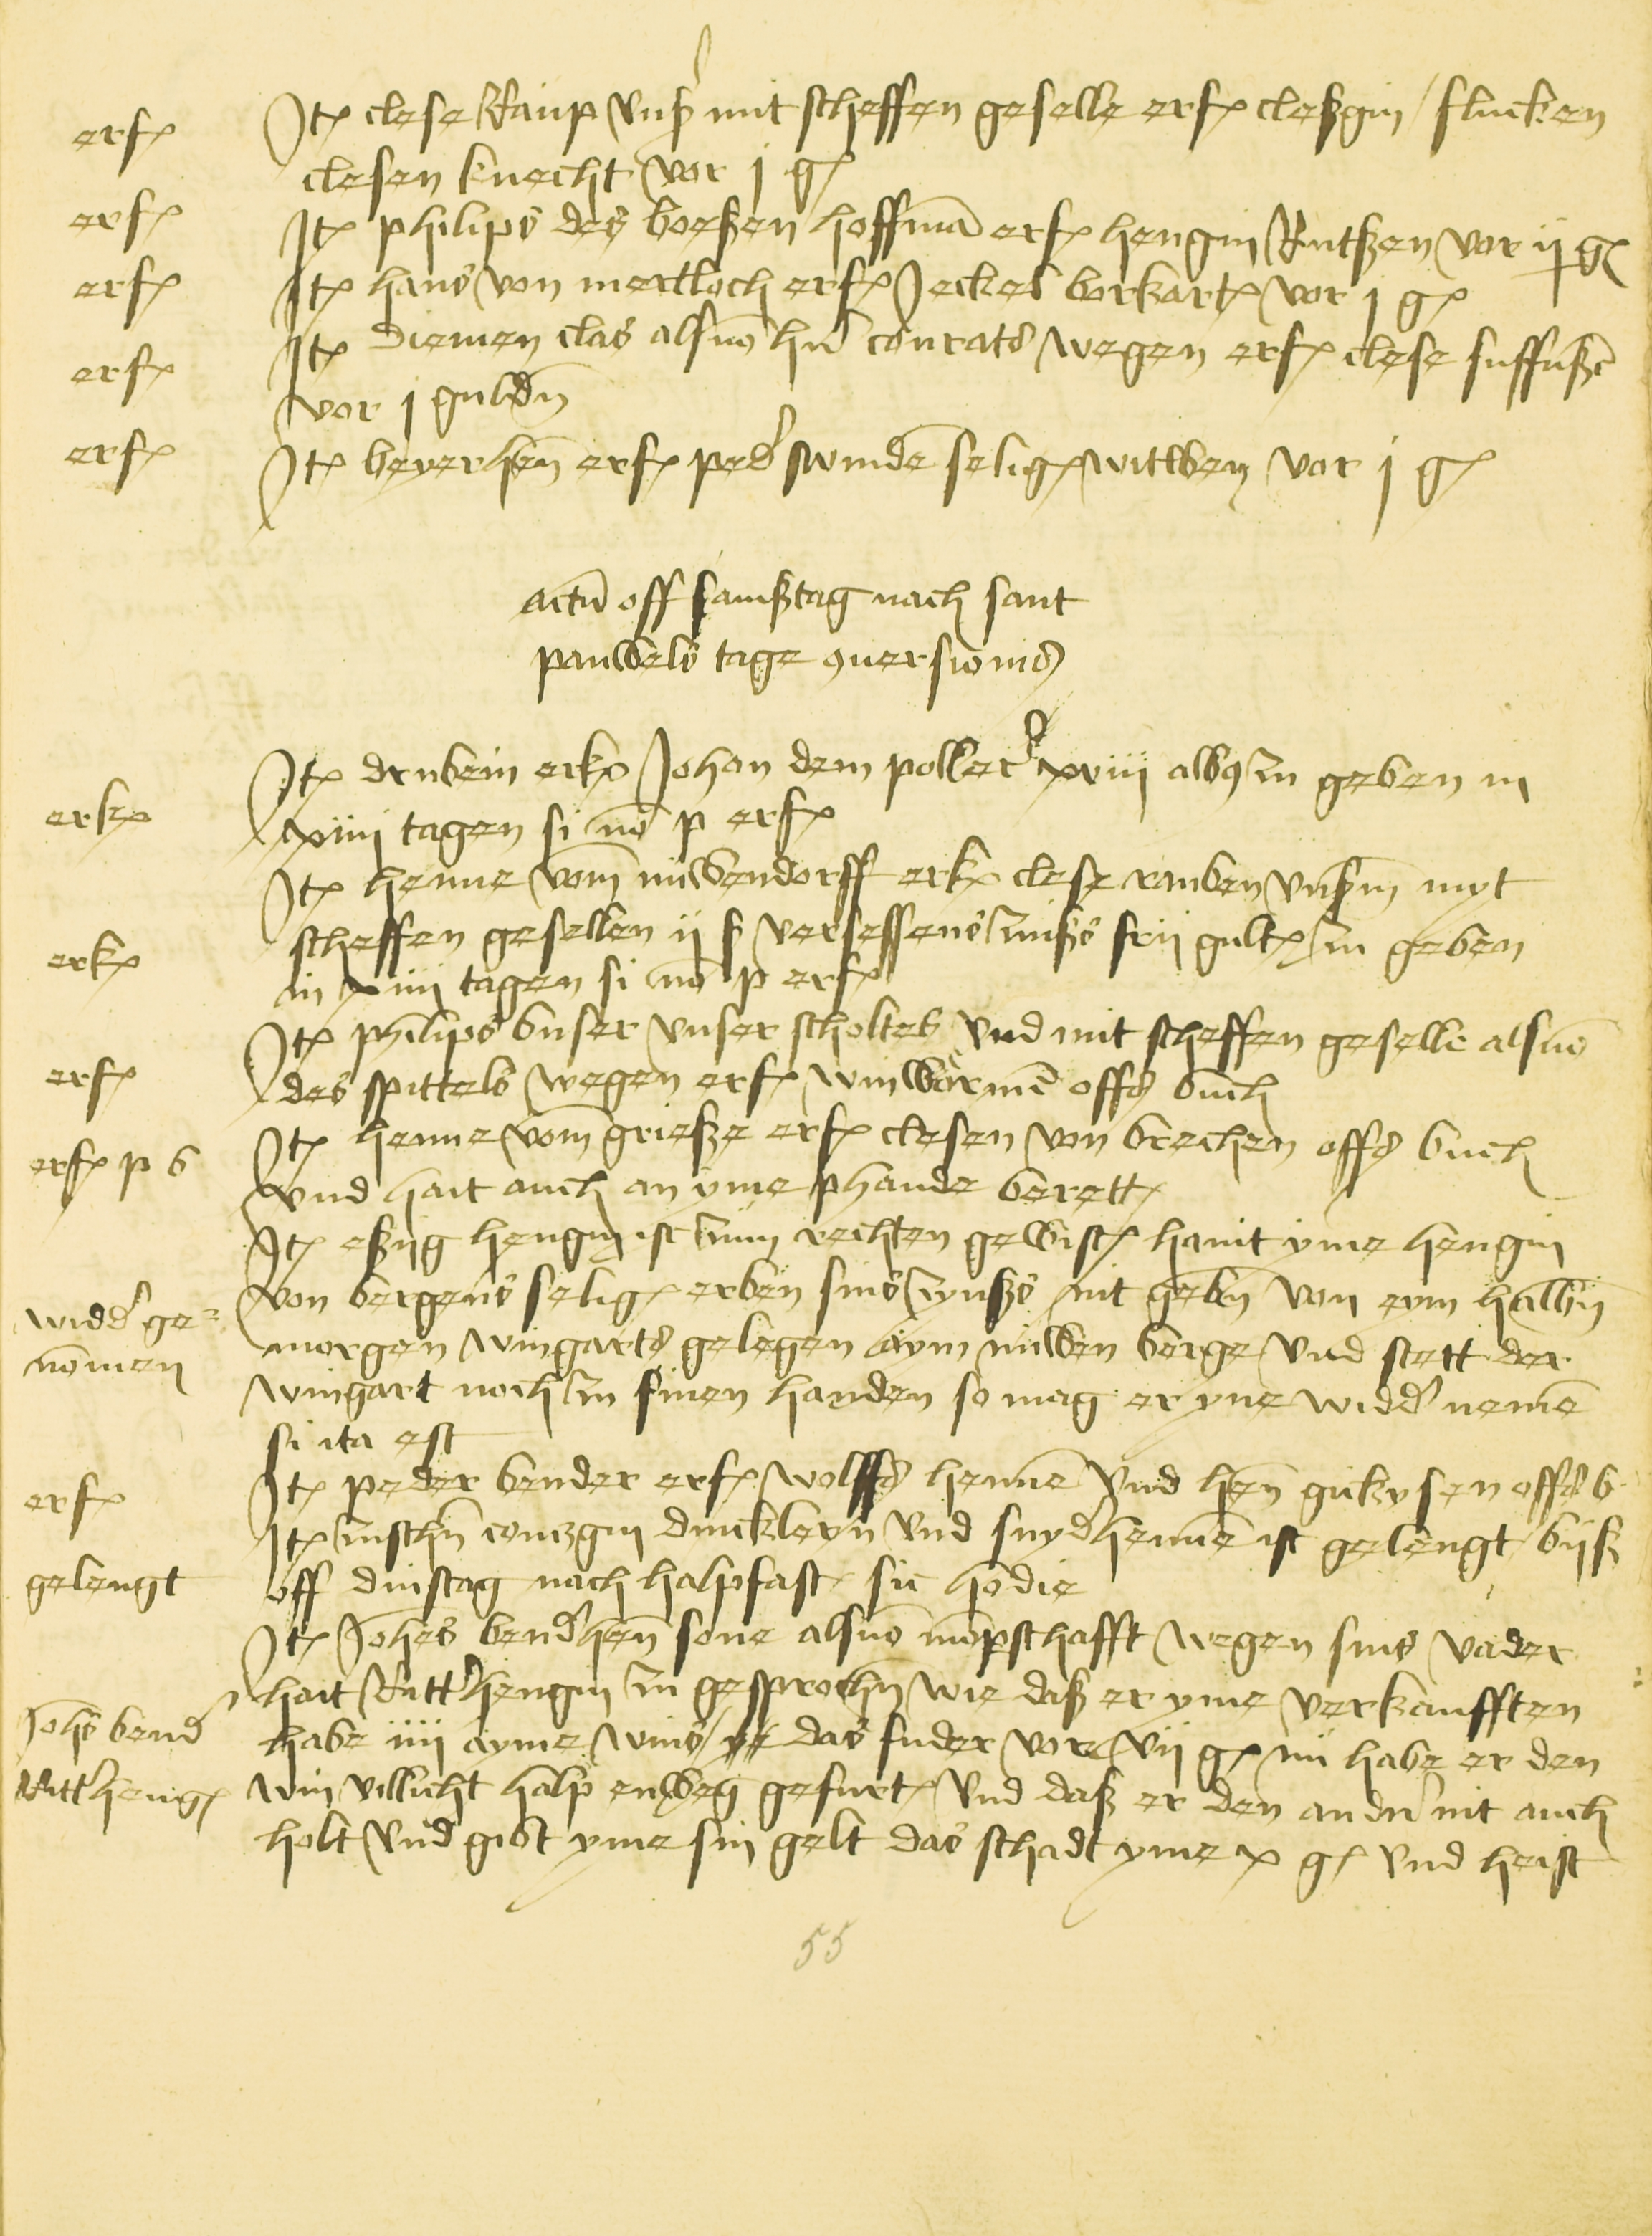 erf(
It(e)m clese Raup unß(er) mit scheffen geselle erf( cleßgin flucken
clesen knecht vor j g(
erf(
It(e)m philips des boeßen hoffma(n) erf( hengin Rutßen vor ij g(
erf(
It(e)m hans von mertloch erf( Jeckel borkart( vor j g(
erf(
It(e)m Diemen clas als vo(n) h(er)n conrats wegen erf( clese suffuß(e)
vor j guld(e)n
erf(
It(e)m beyerhen(n) erf( ped(er) swinde(n) selig( witwen vor j g(
actu(m) off samßtag nach sant
pauwels tage (con)uersionis
erk(
It(e)m drubein erk( Johan dem poller xviij alb(us) zu geben in
xiiij tagen si no(n) p erf(
erk(
It(e)m henne vom nuwendorff erk( clese rauben unß(er)m myt
scheffen gesellen ij ß versessens zinßs frij gult( zu geben
in xiiij tagen si no(n) p erf(
erf(
It(e)m philips buser unser scholtes und mit scheffen geselle als vo(n)
des spittels wegen erf( winworme(n) offs buch
erf( p b
It(e)m henne vom grieße erf( clesen von brechen offs buch
und hait auch an yme phande berett(
widd(er) ge=
nomen
It(e)m eßijg hengin ist zum rechten gewist( hanit yme hengin
von bergens selig( erben sins zynßs nit geb(e)n von eym halb(e)n
morgen wingarts gelegen aym nuwen berge und stett der
wingart noch zu sinen handen so mag er yne widd(er) neme(n)
si ita est
erf(
It(e)m peder bender erf( wolffs henne(n) und hen(n) gickysen offs b
gelengt
It(e)m zusch(e)n conczgin duncklern und snyd(er)henne(n) ist gelengt bijß
off dinstag nach halpfast( sic(ut) hodie
Joh(anne)s bend(er)
Ritt(er)heng(
It(e)m Joh(ann)es bend(er)hen(n) sone als vo(n) mo(m)pschafft wegen sins vader
hait Ritt(er)hengin zu gesproch(e)n wie daß er yme verkaufften
habe iiij ayme wins ye das fuder vor xvij g( nu habe er den
win villicht halp enweg gefurt( und daß er den and(er)n nit auch
holt und gibt yme sin gelt das schadt yme x g( und heist
55